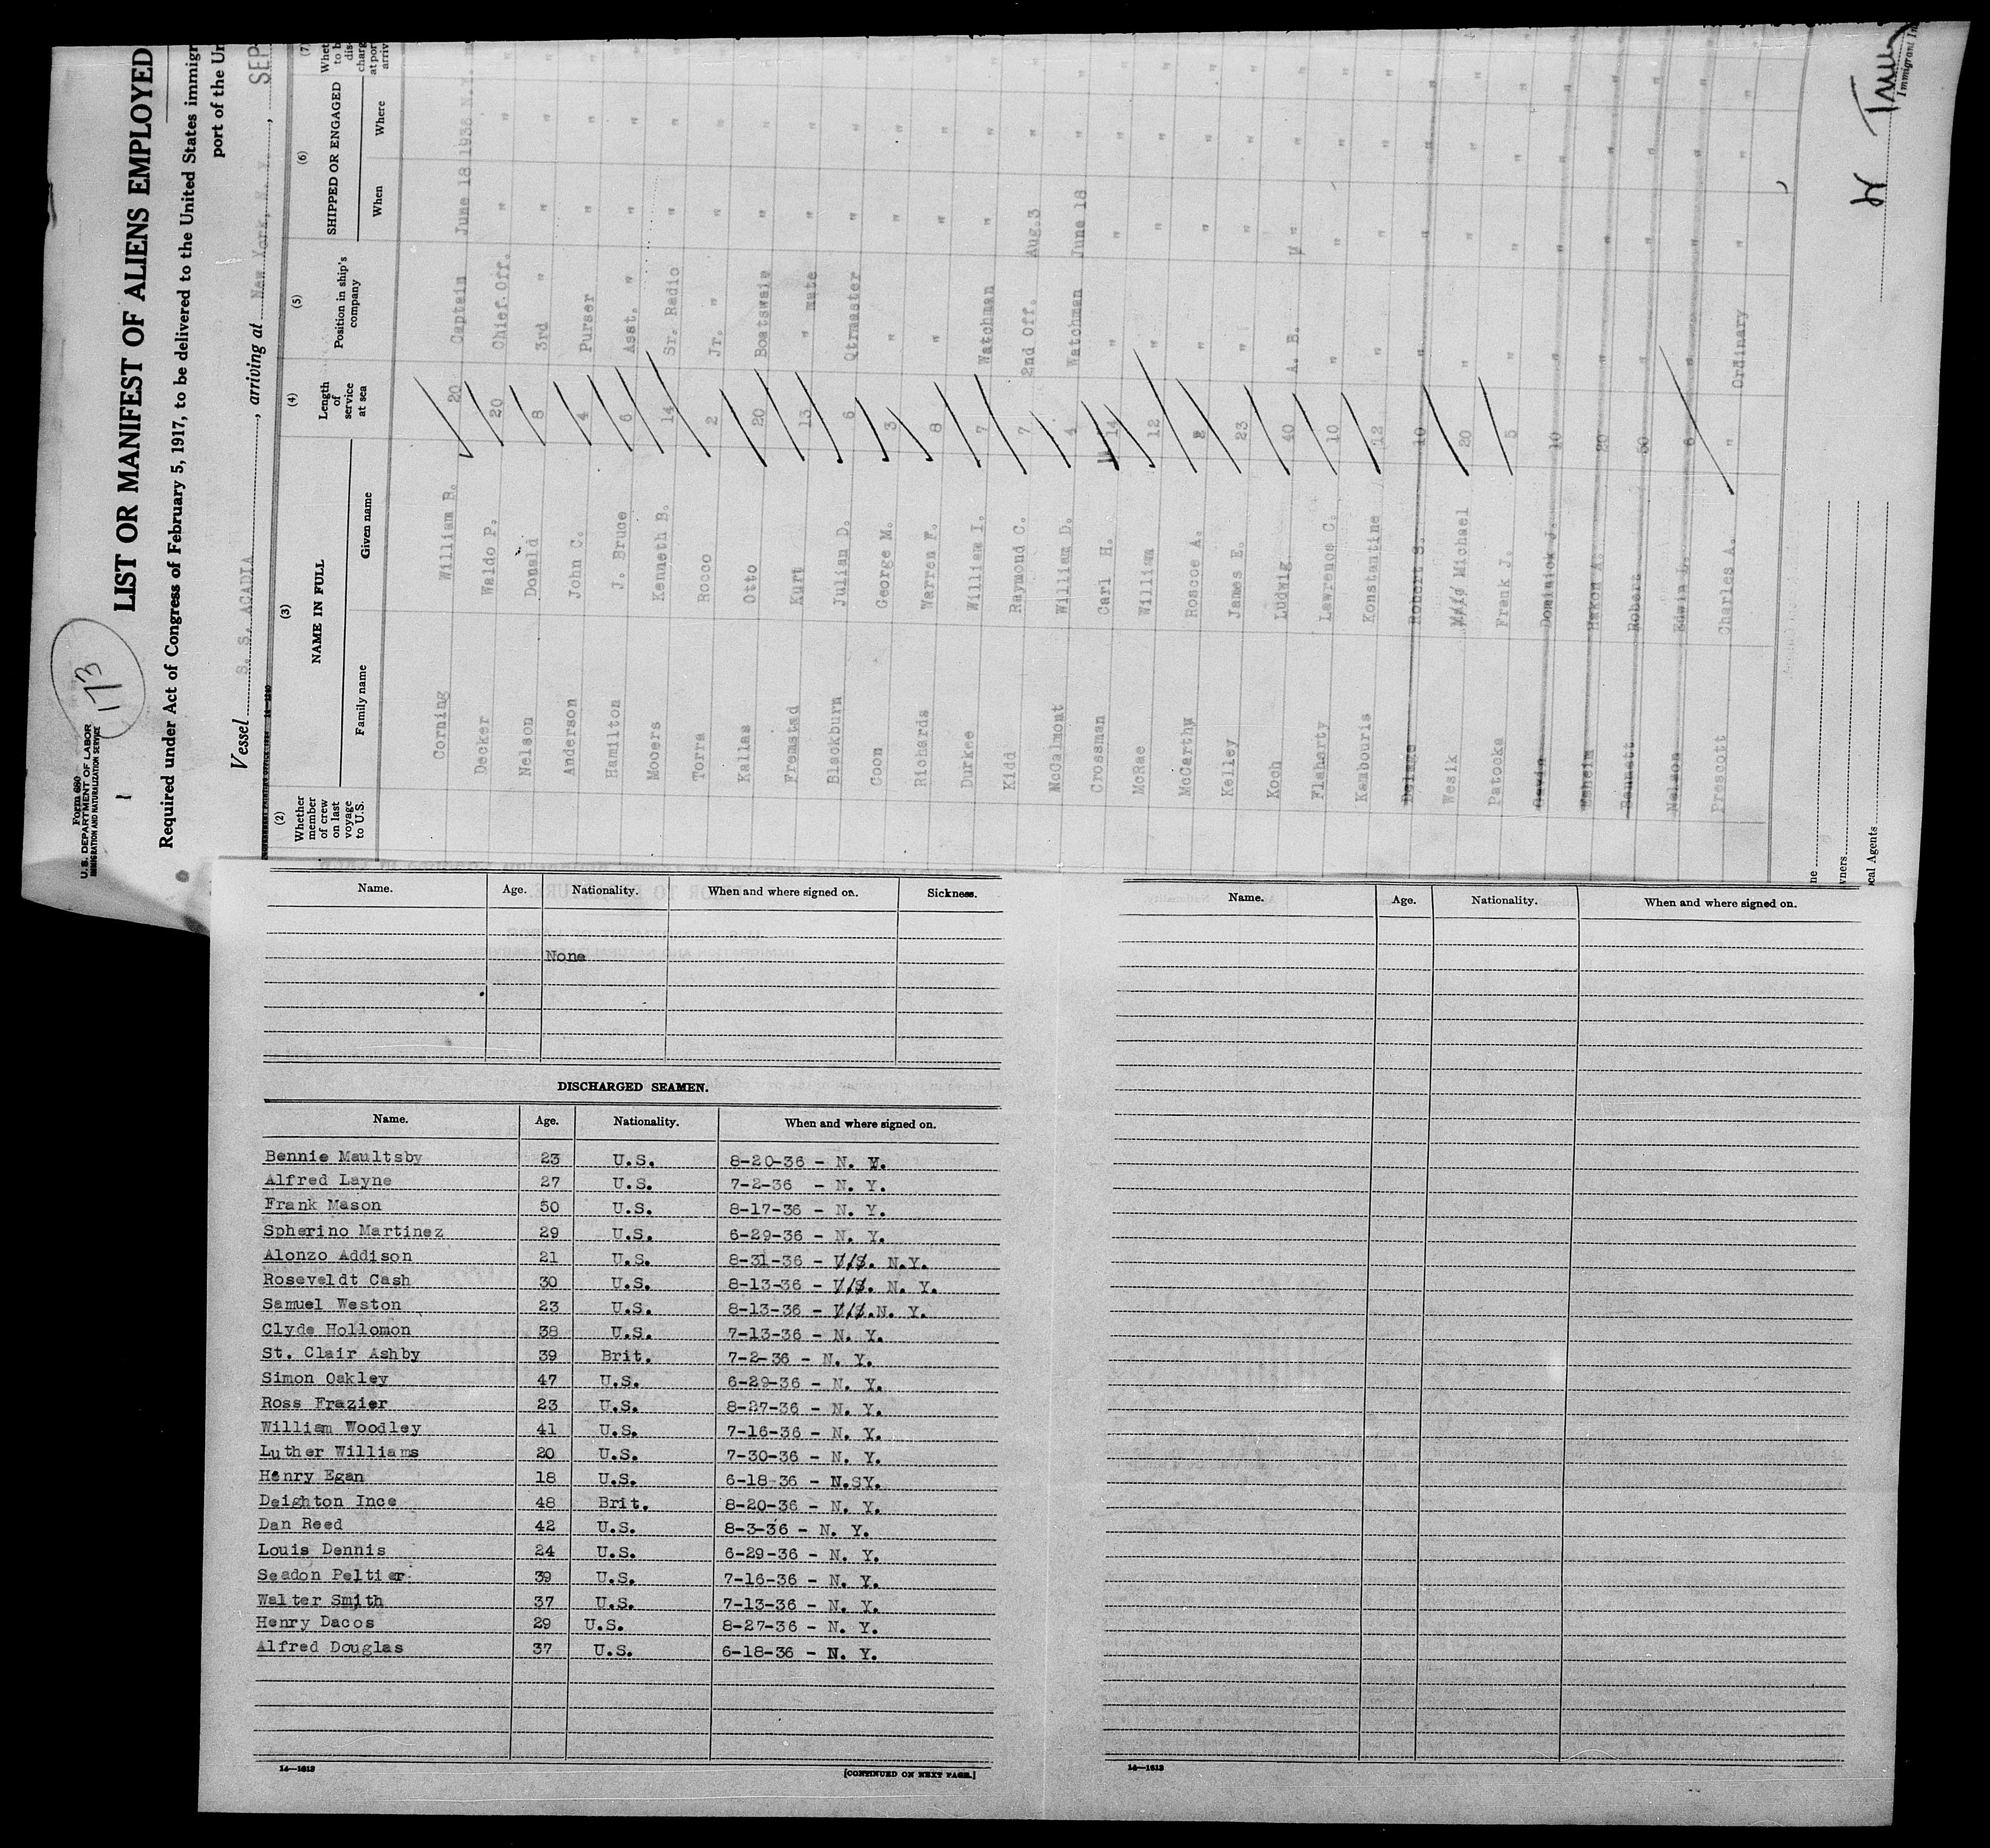 Form 680
U.S. DEPARTMENT OF LABOR
IMMIGRATION AND NATURALIZATION SERVICE
1
173
LIST OR MANIFEST OF ALIENS EMPLOYED
Required under Act of Congress of February 5, 1917, to be delivered to the United States immigr
port of the Un
Vessel S. S. ACADIA, arriving at New York, N. Y., SEP
(2) (3) (4) (5) (6) (7)
Whether member of crew on last voyage to U.S. NAME IN FULL Length of service at sea Position in ship's company SHIPPED OR ENGAGED
Family name Given name When Where
Corning William B. 20 Captain June 18 1936 N.
Decker Waldo P. 20 Chief. Off. " "
Nelson Donald 8 3rd " " "
Anderson John C. 4 Purser " "
Hamilton J. Bruce 6 Asst. " " "
Mooers Kenneth B. 14 Sr. Radio " "
Torra Rocco 2 Jr. " " "
Kallas Otto 20 Boatswain " "
Fremstad Kurt 13 " mate " "
Blackburn Julian D. 6 Qtrmaster " "
Coon George M. 3 " " "
Richards Warren F. 8 " " "
Durkee William I. 7 Watchman " "
Kidd Raymond C. 7 2nd Off. Aug. 3 "
McCalmont William D. 4 Watchman June 18 "
Crossman Carl H. 14 " " "
McRae William 12 " " "
McCarthy Roscoe A. " " "
Kelley James E. 23 " " "
Koch Ludwig 40 A. B. " "
Flaherty Lawrence C. 10 " " "
Kambouris Konstantine 12 " " "
Robert S. 10 " " "
Wesik Michael 20 " " "
Patocka Frank J. 5 " " "
Gavin Dominick J. 10 " " "
Hakon A. 20 " " "
Bennett Robert 30 " " "
Nelson Edwin L. 6 " " "
Prescott Charles A. " Ordinary " "
Immigrant In
wners
cal Agents
Name. Age. Nationality. When and where signed on. Sickness.
None
DISCHARGED SEAMEN.
Name. Age. Nationality. When and where signed on.
Bennie Maultsby 23 U.S. 8-20-36 - N. Y.
Alfred Layne 27 U.S. 7-2-36 - N. Y.
Frank Mason 50 U.S. 8-17-36 - N. Y.
Spherino Martinez 29 U.S. 6-29-36 - N. Y.
Alonzo Addison 21 U.S. 8-31-36 - U.S. N.Y.
Roseveldt Cash 30 U.S. 8-13-36 - U.S. N. Y.
Samuel Weston 23 U.S. 8-13-36 - U.S.N. Y.
Clyde Hollomon 38 U.S. 7-13-36 - N. Y.
St. Clair Ashby 39 Brit. 7-2-36 - N. Y.
Simon Oakley 47 U.S. 6-29-36 - N. Y.
Ross Frazier 23 U.S. 8-27-36 - N. Y.
William Woodley 41 U.S. 7-16-36 - N. Y.
Luther Williams 20 U.S. 7-30-36 - N. Y.
Henry Egan 18 U.S. 6-18-36 - N.SY.
Deighton Ince 48 Brit. 8-20-36 - N. Y.
Dan Reed 42 U.S. 8-3-36 - N. Y.
Louis Dennis 24 U.S. 6-29-36 - N. Y.
Seadon Peltier 39 U.S. 7-16-36 - N. Y.
Walter Smith 37 U.S. 7-13-36 - N. Y.
Henry Dacos 29 U.S. 8-27-36 - N. Y.
Alfred Douglas 37 U.S. 6-18-36 - N. Y.
14—1613
[CONTINUED ON NEXT PAGE.]
Name. Age. Nationality. When and where signed on.
14—1613